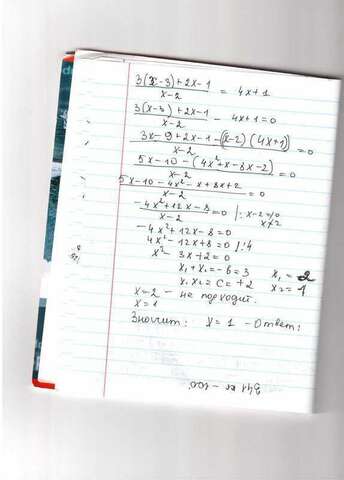 3(x-3)+2x-1 / x-2 = 4x+1
3(x-3)+2x-1 / x-2 - 4x+1=0
3x-9+2x-1-(x-2)(4x+1) / x-2 = 0
5x-10-(4x²+x-8x-2) / x-2 = 0
5x-10-4x²-x+8x+2 / x-2 = 0
-4x²+12x-8 / x-2 = 0 |: x-2≠0
x≠2
-4x²+12x-8=0
4x²-12x+8=0 |:4
x²-3x+2=0
x₁+x₂=-b=3 x₁=2
x₁x₂=c=+2 x₂=1
x=2 - не подходит.
x=1
Значит: x=1 - Ответ: